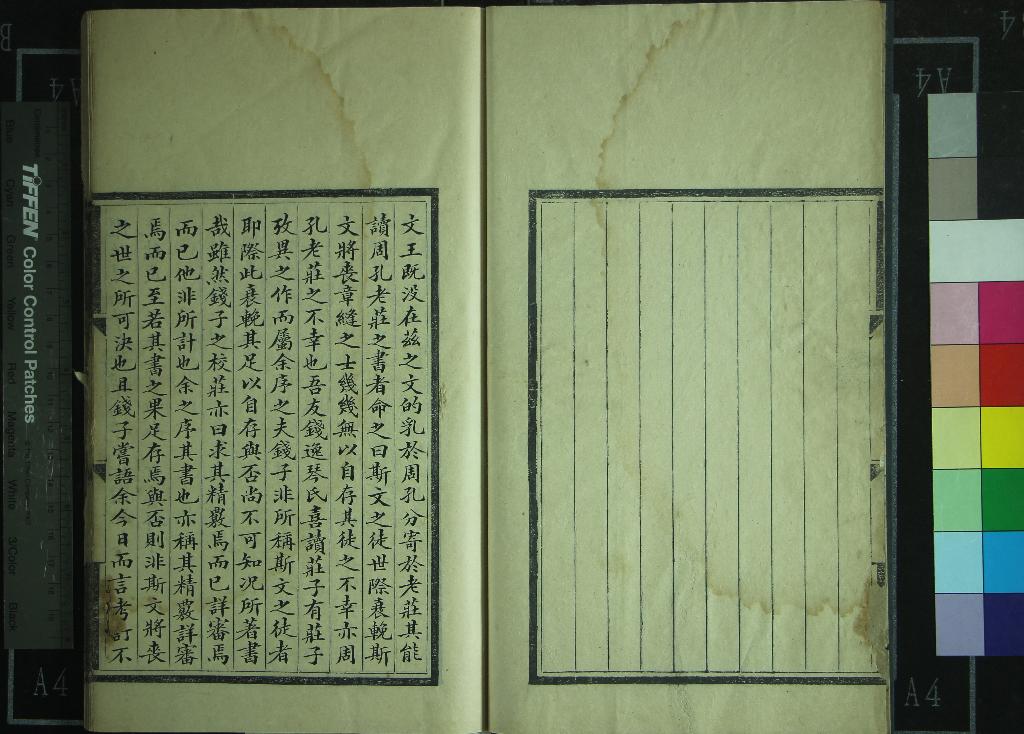 文王既没在茲之文的乳於周孔分寄於老莊其能
讀周孔老莊之書者命之曰斯文之徒世際衰輓斯
文將喪章縫之士幾幾無以自存其徒之不幸亦周
孔老莊之不幸也吾友錢逸琴氏喜讀莊子有莊子
攷異之作而屬余序之夫錢子非所稱斯文之徒者
耶際此衰輓其足以自存與否尚不可知况所著書
哉雖然錢子之校莊亦曰求其精覈焉而已詳審焉
而已他非所計也余之序其書也亦稱其精覈詳審
焉而已至若其書之果足存焉與否則非斯文將喪
之世之所可決也且錢子嘗語余今日而言考訂不
TIFFEN Color Control Patches
Blue
Cyan
Green
Yellow
Red
Magenta
White
3/Color
Black
A4
A4
A4
A4
B